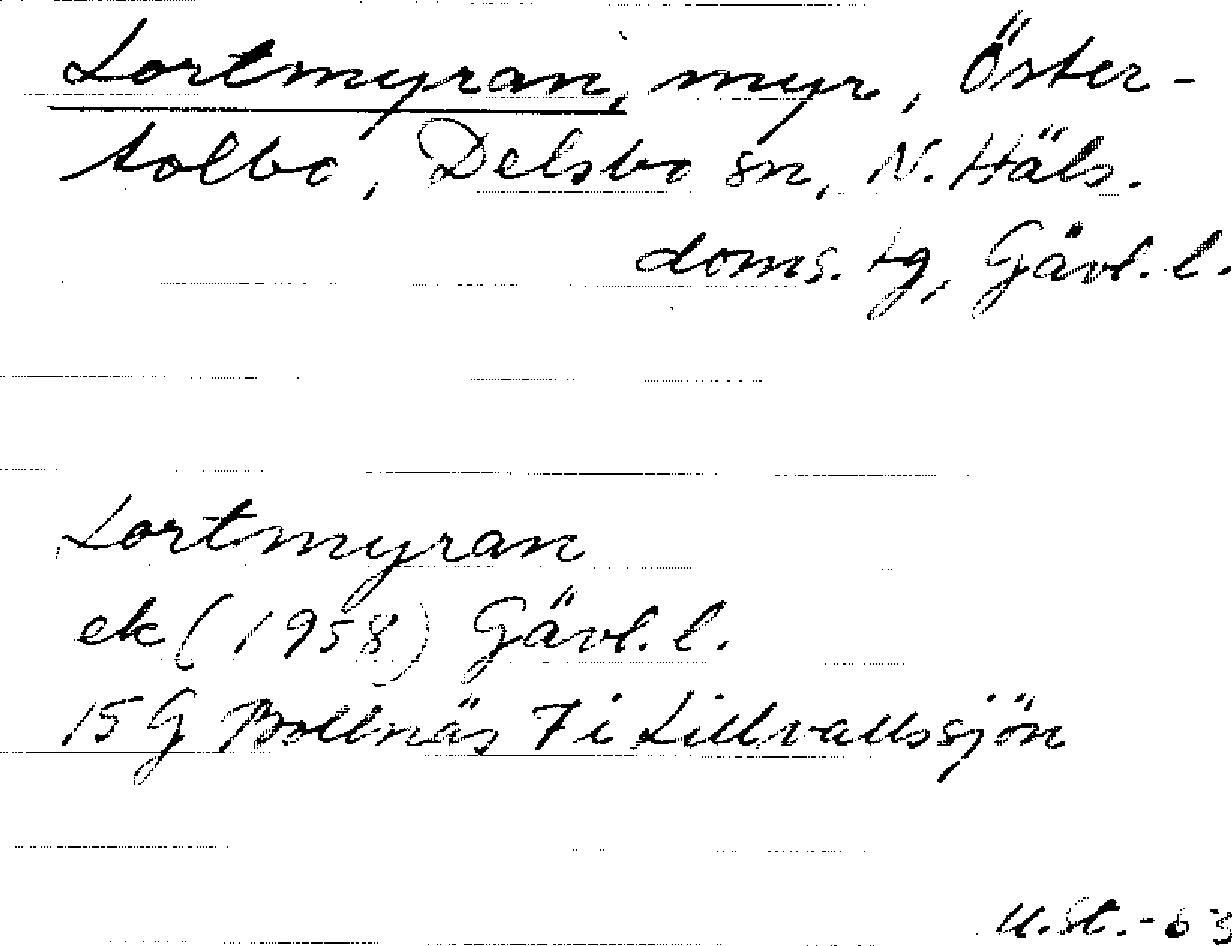 Lortmyran, myr, Öster-
tolbo, Delsbo sn, N. Häls.
doms. tg, Gävl. l.
Lortmyran
ek (1958) Gävl. l.
15 G Bollnäs 7 i Lillvallssjön
U.St.-63